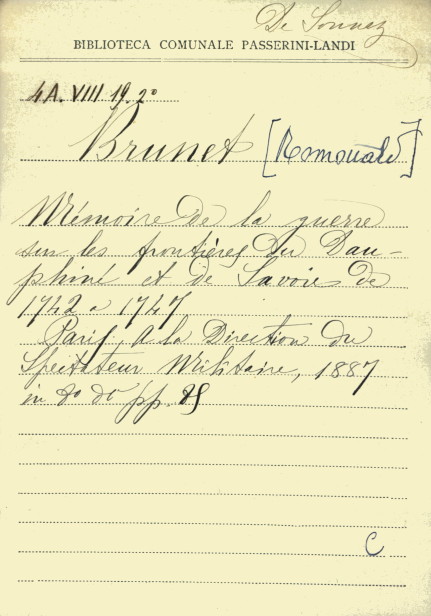 De Sonnaz
BIBLIOTECA COMUNALE PASSERINI-LANDI
4A. VIII 19. 2º
Brunet [Romouald]
Mémoire de la guerre
sur les frontières du Dau-
phiné et de Savoie de
1742 a 1747
Paris, a la Direction du
Spectateur Militaire, 1887
in 8º pp.
C